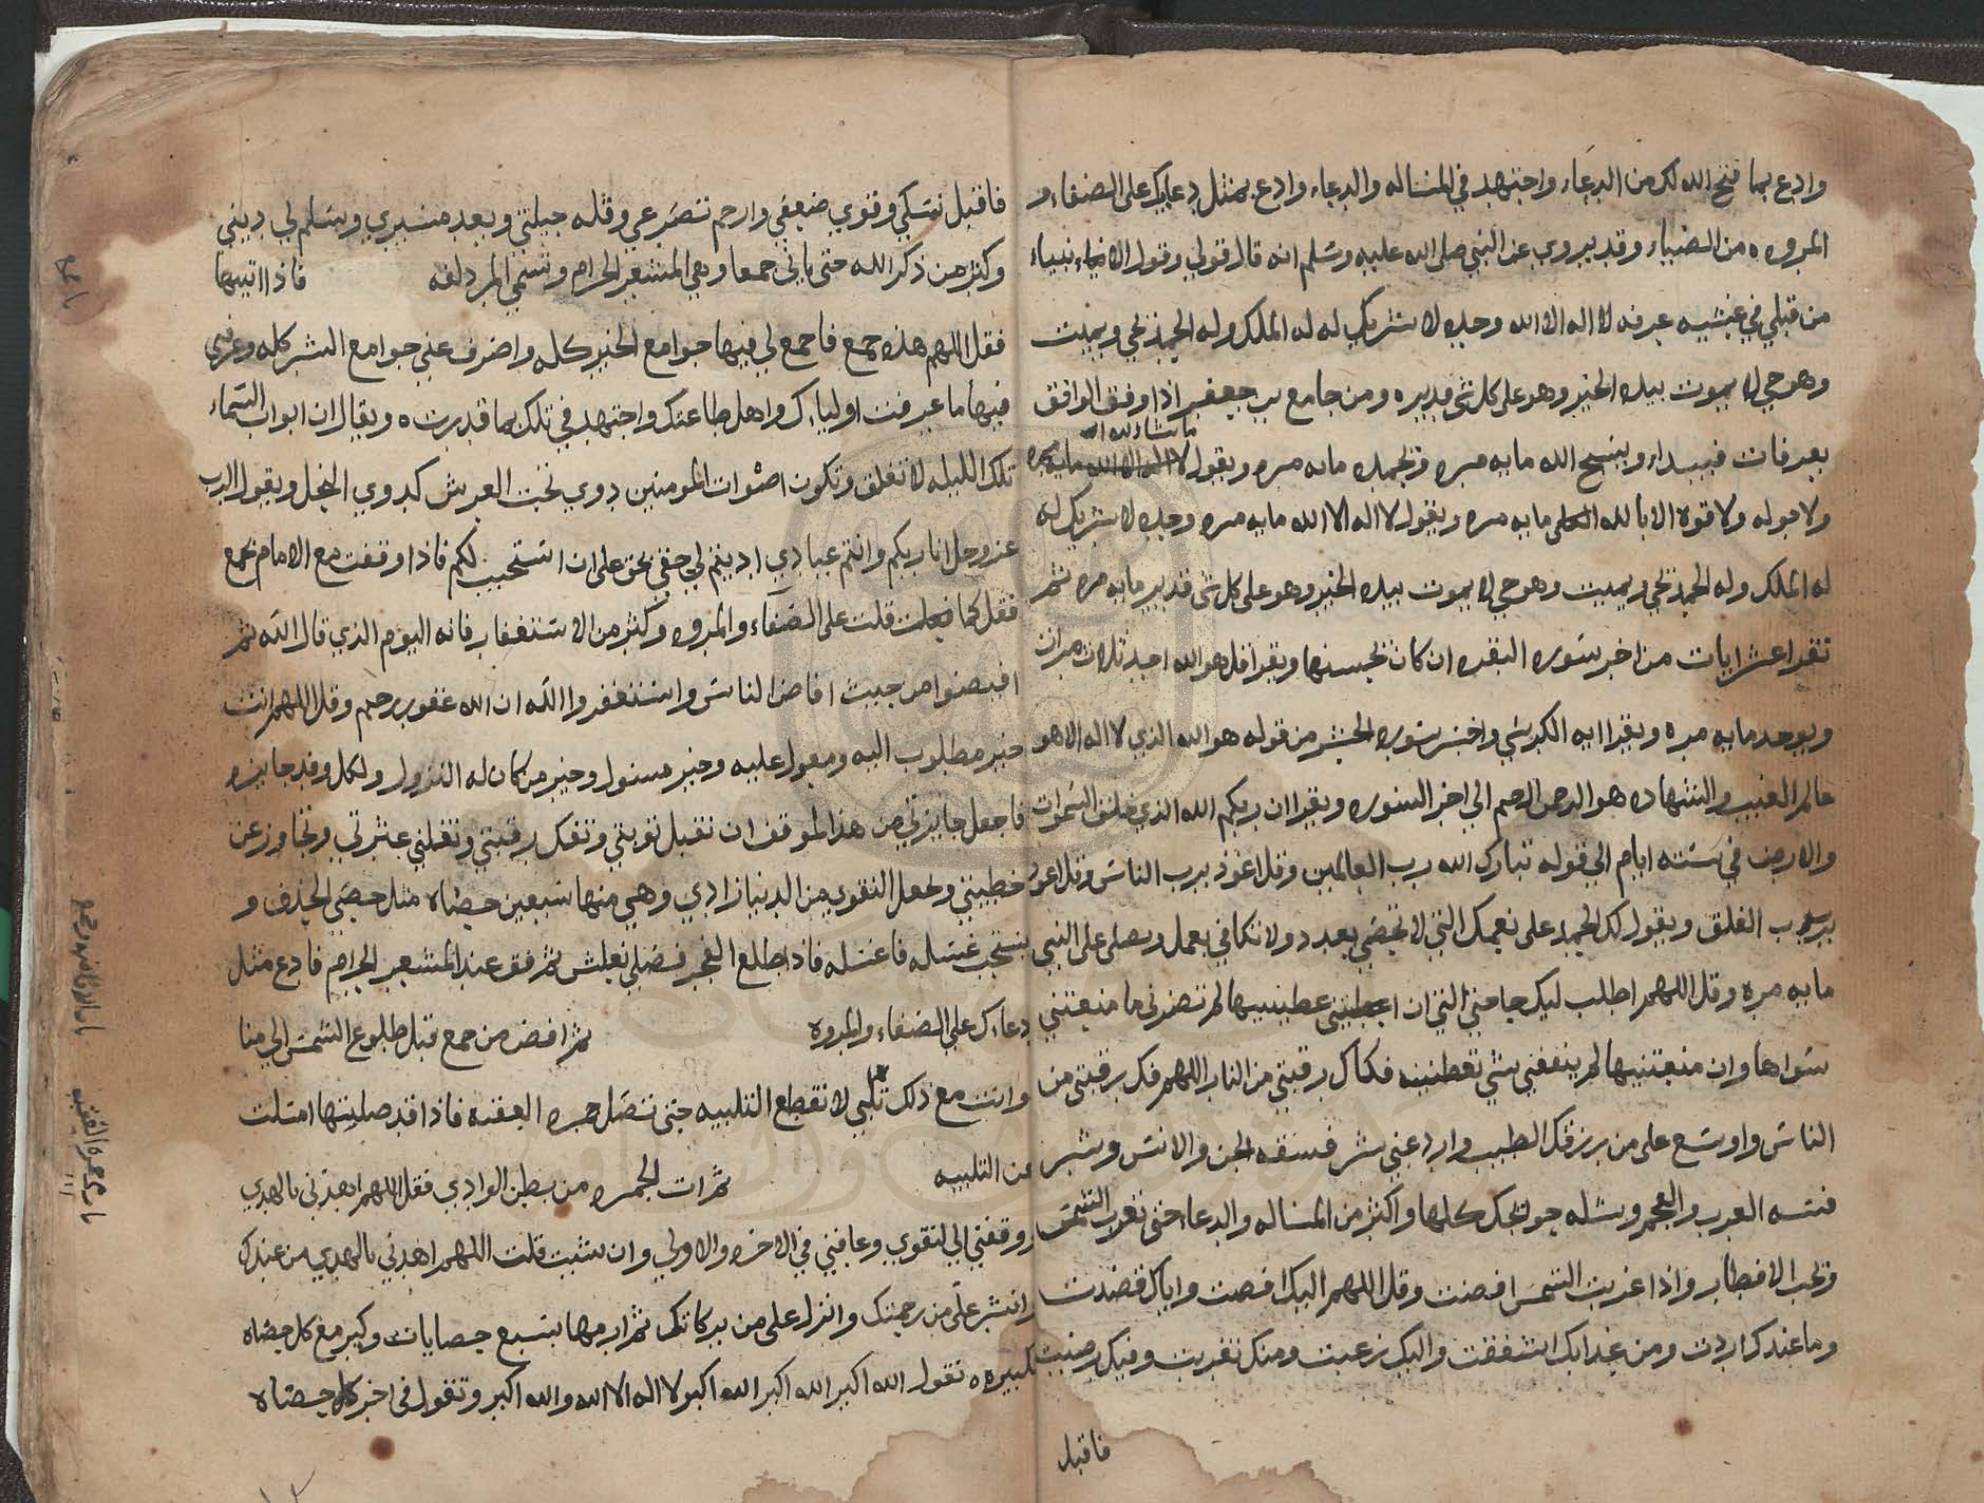 وادع بما فتح الله لك من الدعاء واجتهد في المساله والدعاء وادع بمثل دعايك على الصفاء و
المروه ه من الضياء وقد يروي عن النبي صلى الله عليه وسلم انه قال قولي وقول الانبياء
من قبلي في عشيه عرفه لا اله الا الله وحده لا شريك له له الملك وله الحمد يحي ويميت
وهو حي لا يموت بيده الخير وهو على كل شي قدير ه ومن جامع بن جعفر اذا وقف الواقف
بعرفات فيبداء ويسبح الله مايه مره وتحمده مايه مره ويقول ما شاء الله
ولا حول ولا قوة الا بالله العلي مايه مره ويقول لا اله الا الله مايه مره وحده لا شريك له
له الملك وله الحمد يحي ويميت وهو حي لا يموت بيده الخير وهو على كل شي قدير مايه مره ثم
تقرا عشر ايات من اخر سوره البقره ان كان تحسنها ويقرا قل هو الله احد ثلاث مرات
ويوحد مايه مره ويقرا ايه الكرسي واخر سوره الحشر من قوله هو الله الذي لا اله الا هو
عالم الغيب والشهاده هو الرحمن الرحيم الى اخر السوره ويقرا ان ربكم الله الذي خلق السموات
والارض في سته ايام الى قوله تبارك الله رب العالمين وقل اعوذ برب الناس وقل اعوذ
برب الفلق ويقول لك الحمد على نعمك التي لا تحصي بعدد ولا تكافي بعمل ويصلي على النبي
مايه مره وقل اللهم اطلب اليك حاجتي التي ان اعطيتني عطيتيها لم تضرني ما منعتني
سواها وان منعتنيها لم ينفعني شي تعطنيه فكاك رقبتي من النار اللهم فك رقبتي من
الناس واوسع علي من رزقك الطيب وارد عني شر فسقه الجن والانس وشر
فسه العرب والعجم وسله حوائجك كلها واكثر من المساله والدعاء حتى تغرب الشمس
وتحب الافطار واذا غربت الشمس افضت وقل اللهم اليك افضت واياك قصدت
وما عندك اردت ومن عذابك اشفقت واليك رغبت ومنك تقربت وفيك رضيت
فاقبل
فاقبل نسكي وقوي ضعفي وارحم تضرعي وقله حيلتي وبعد مسيري وسلم لي ديني
وكثر من ذكر الله حتى ياتي جمعا وهي المشعر الحرام وتسمي المزدلفه فاذا اتيتها
فقل اللهم هذه جمع فاجمع لي فيها جوامع الخير كله واصرف عني جوامع الشر كله وعرفني
فيها ما عرفت اولياءك واهل طاعتك واجتهد في تلك بما قدرت ه ويقال ان ابواب السماء
تلك الليله لا تغلق وتكون اصوات المومنين دوي تحت العرش كدوي النحل ويقول الرب
عز وجل انا ربكم وانتم عبادي اديتم لي حقي بحق علي ان استجيب لكم فاذا وقفت مع الامام بجمع
فقل كما قلت على الصفاء والمروه وكثر من الاستغفار فانه اليوم الذي قال الله ثم
افيضوا من حيث افاض الناس واستغفروا الله ان الله غفور رحيم وقل اللهم انت
خير مطلوب اليه ومعول عليه وخير مسئول وخير من كان له النزول ولكل وفد جايزه
فاجعل جايزتي من هذا الموقف ان تقبل توبتي وتفك رقبتي وتقلني عثرتي وتجاوز عن
خطيئتي وتجعل التقوي من الدنيا زادي وهي منها سبعين حصاه مثل حصي الخذف و
يستحب غسله فاغسله فاذا طلع الفجر فصلي بغلس ثم قف عند المشعر الحرام فادع مثل
دعاءك على الصفاء والمروه ثم افض من جمع قبل طلوع الشمس الى منا
وانت مع ذلك تلبي لا تقطع التلبيه حتى تصل جمره العقبه فاذا قد صليتها امسكت
عن التلبيه ثم ات الجمره من بطن الوادي فقل اللهم اهدني بالهدي
ووقفني الى التقوي وعافيني في الاخره والاولى وان شيت قلت اللهم اهدني بالهدي من عندك
وانشر علي من رحمتك وانزل علي من بركاتك ثم ارمها بسبع حصايات وكبر مع كل حصاه
تكبيره ه تقول الله اكبر الله اكبر الله اكبر لا اله الا الله والله اكبر وتقول في اخر كل حصاه